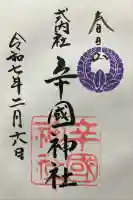 春日の
式内社
辛國神社
辛國神社
令和七年二月六日